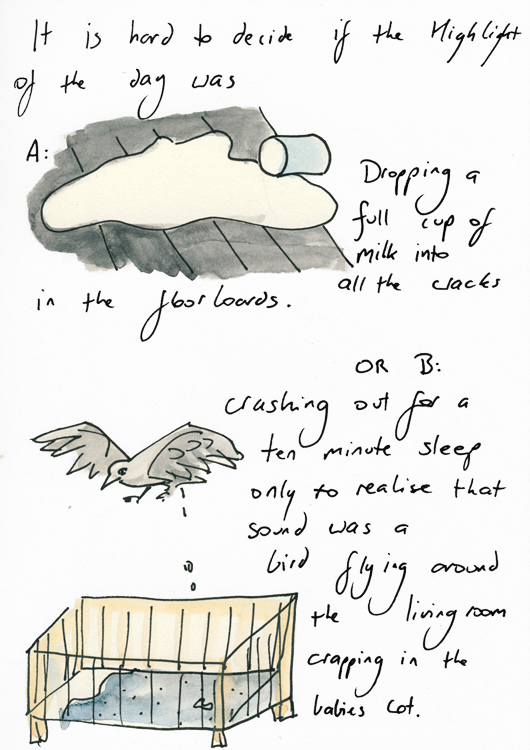 It is hard to decide if the Highlight
of the day was
A:
Dropping a
full cup of
milk into
all the cracks
in the floorboards.
OR B:
crashing out for a
ten minute sleep
only to realise that
sound was a
bird flying around
the living room
crapping in the
babies cot.